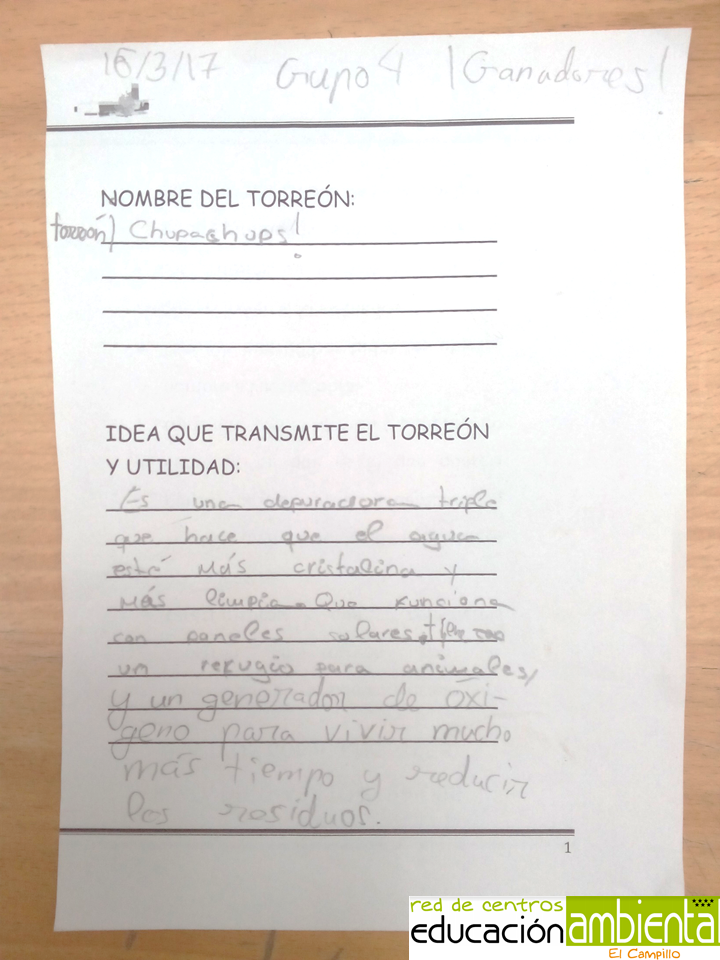 16/3/17 Grupo 4 ¡Ganadores!
NOMBRE DEL TORREÓN:
torreón ¡Chupachups!
IDEA QUE TRANSMITE EL TORREÓN
Y UTILIDAD:
Es una depuradora triple
que hace que el agua
esté más cristalina y
más limpia. Que funciona
con paneles solares.
un refugio para animales,
y un generador de oxí-
geno para vivir mucho
más tiempo y reducir
los residuos.
1
red de centros
educación ambiental
El Campillo